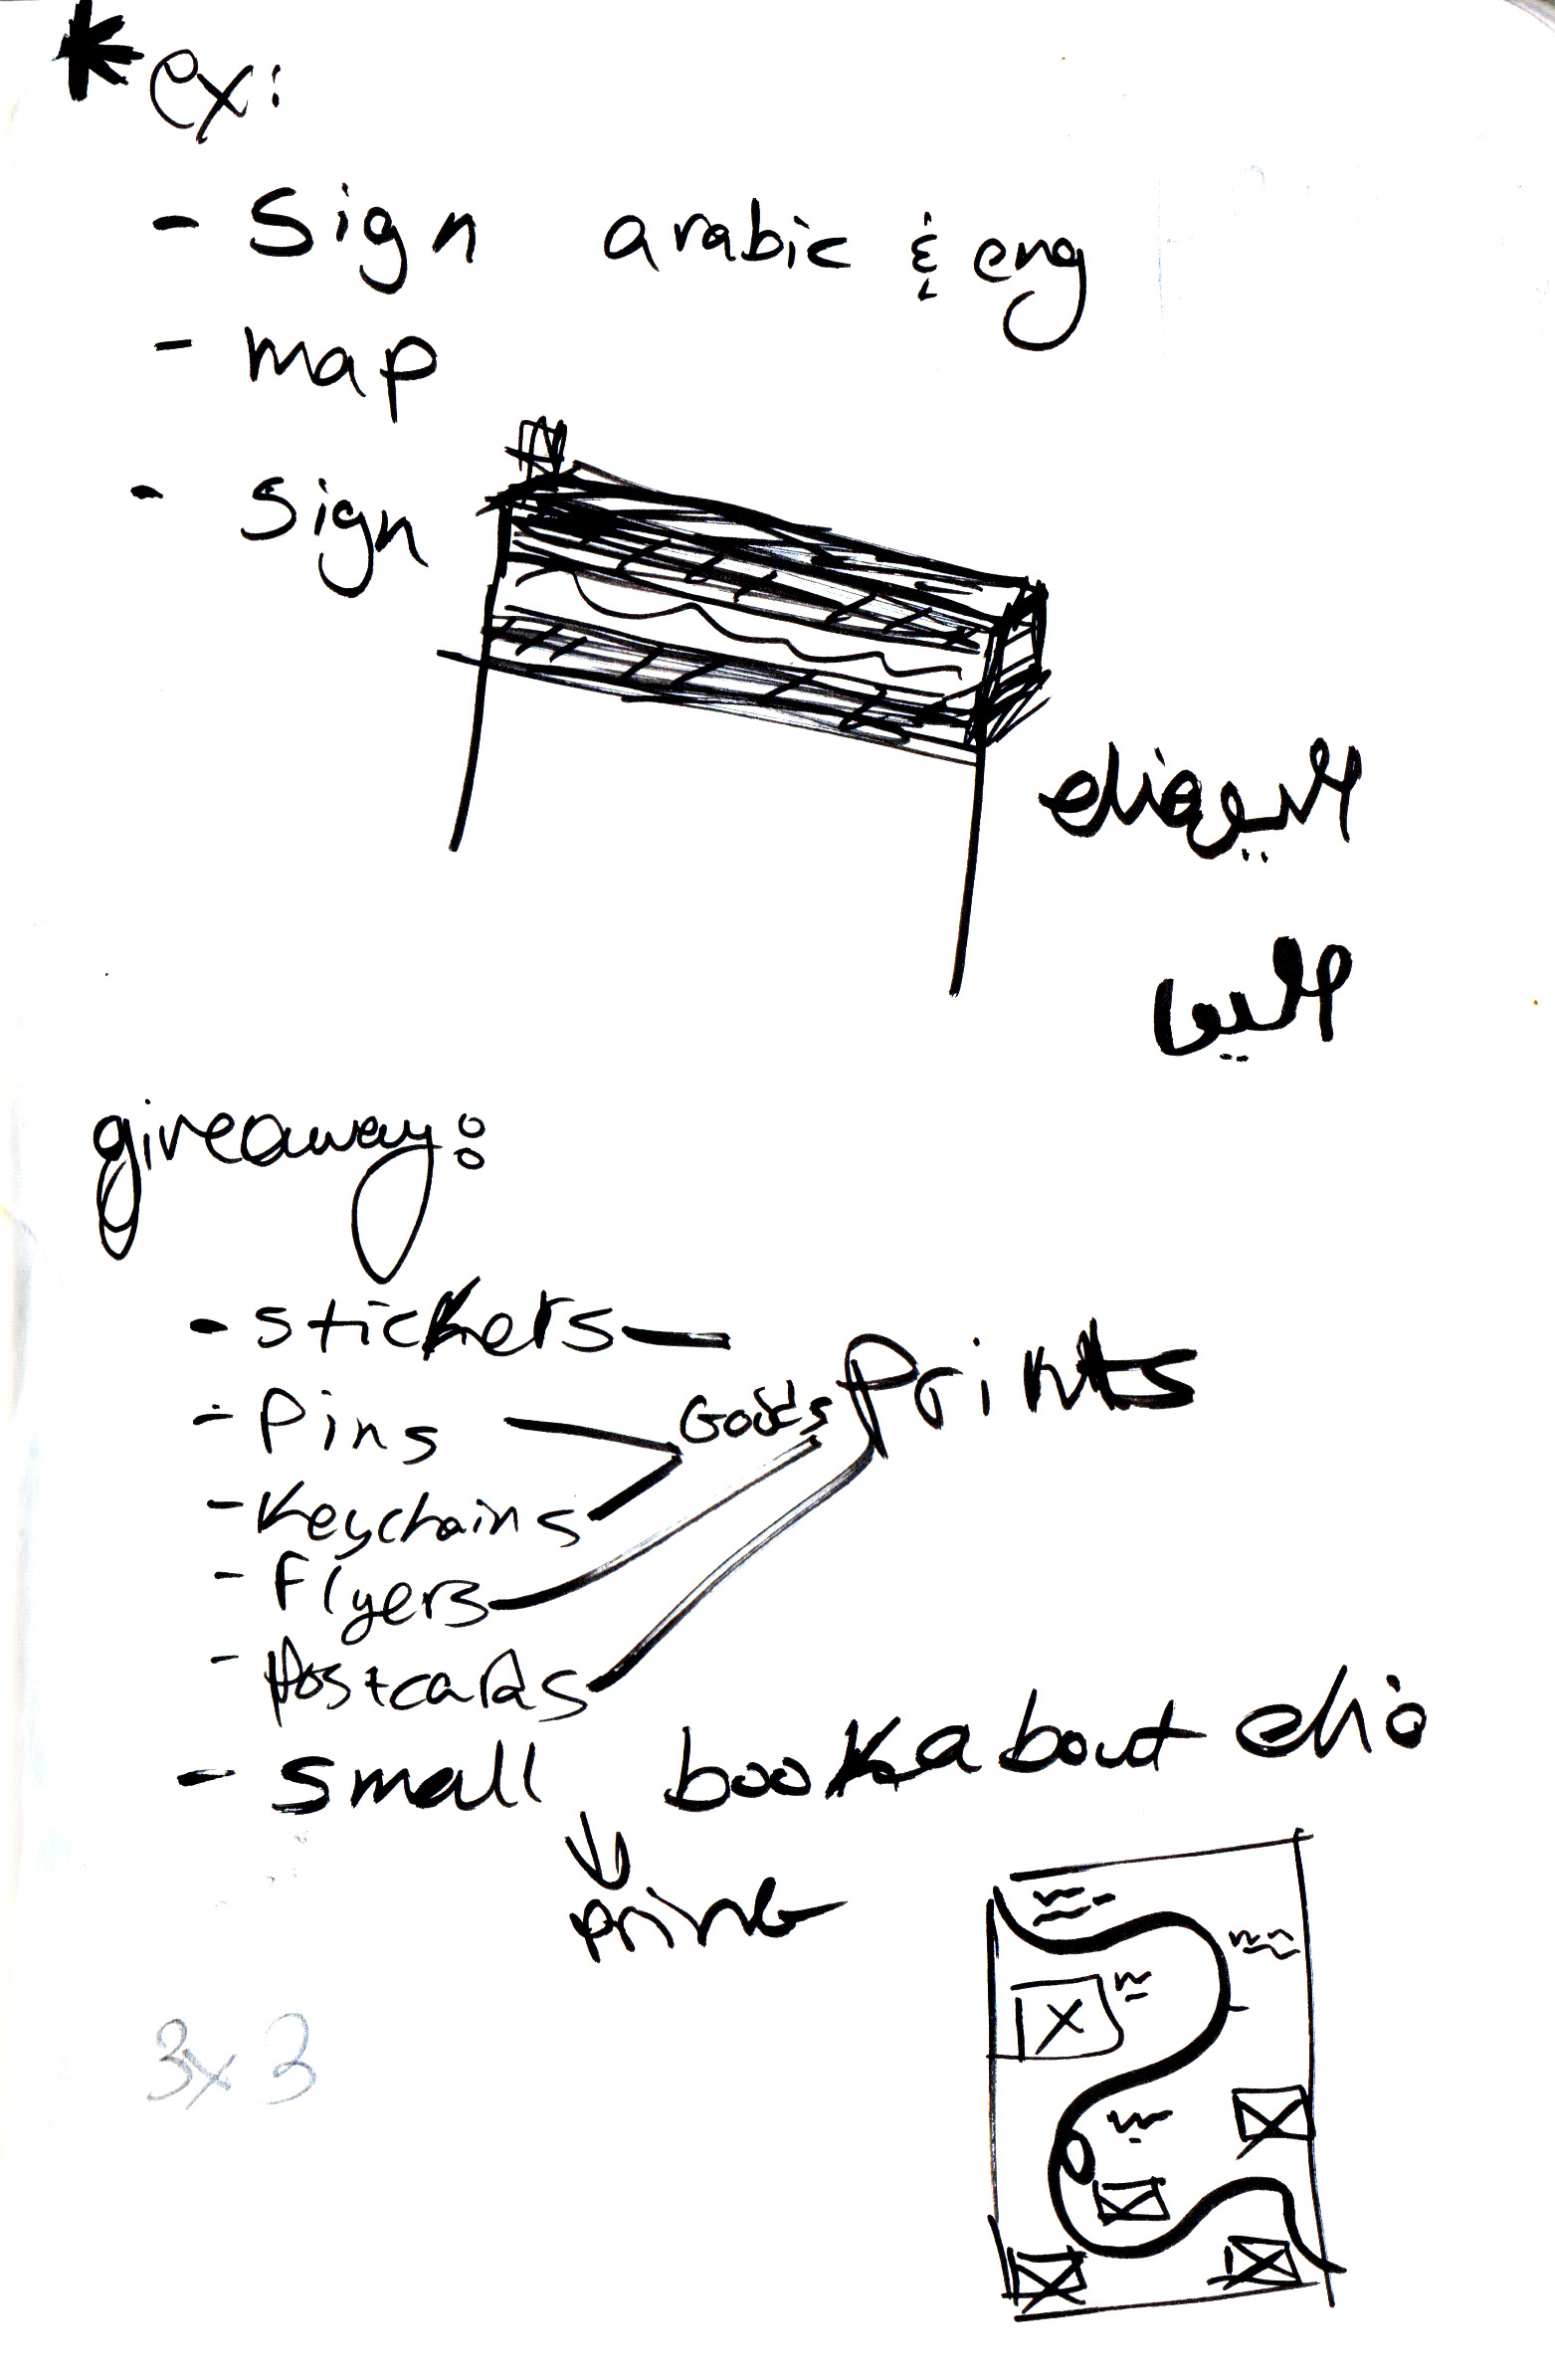 ex:
- Sign arabic & eng
- map
- Sign
اليا
giveaway:
- stickers
- Pins
- Keychains
- Flyers
- Postcards
Goods
Prints
- small book about elia
print
3x3